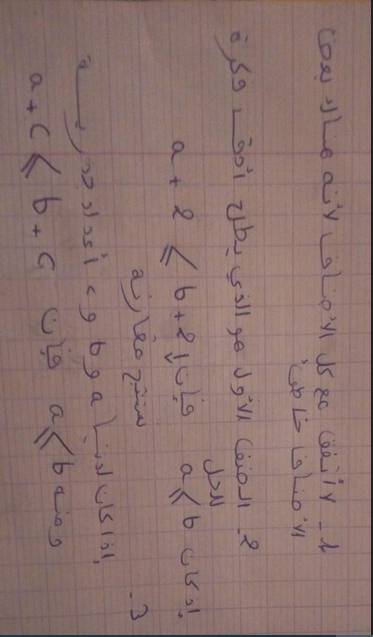 1- لا أتفق مع كل الأصناف لأنه هناك بعض
الأصناف خاطئ
2- الصنف الأول هو الذي يطرح أدق فكرة
للحل
إذا كان a ⩽ b فإن a + 2 ⩽ b + 2
نستنتج مقارنة
3-
إذا كان لدينا a و b و c أعداد جذرية
ومنه a ⩽ b فإن a + c ⩽ b + c